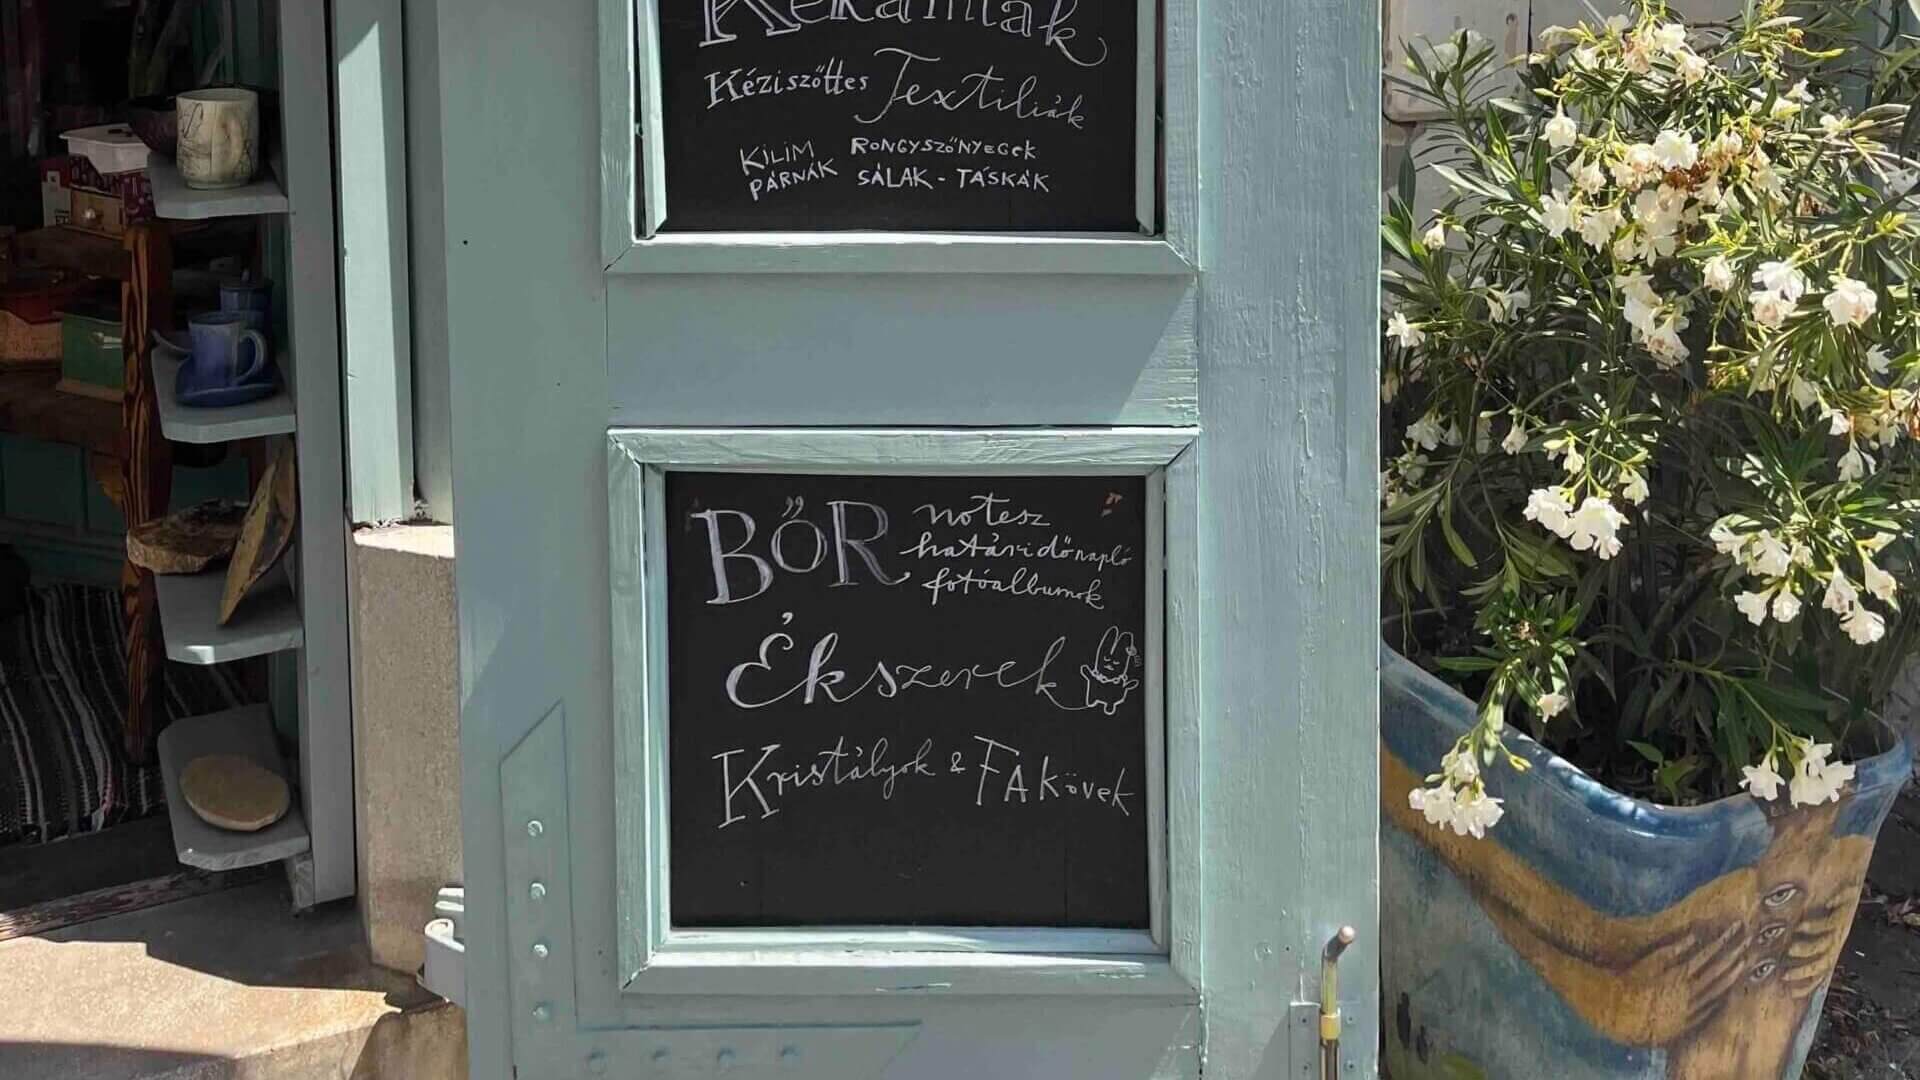 Kéziszőttes Textiliák
KiLiM PÁRNÁK
RONGYSZŐNYEGEK
SÁLAK - TÁSKÁK
BŐR
notesz
határidőnapló
fotóalbumok
Ékszerek
Kristályok & FAkövek